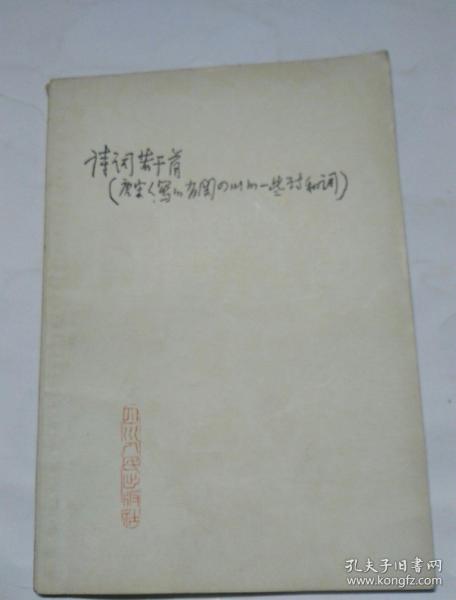 诗词若干首
(唐宋人写的有关四川的一些诗和词)
四川人民出版社
孔夫子旧书网
www.kongfz.com